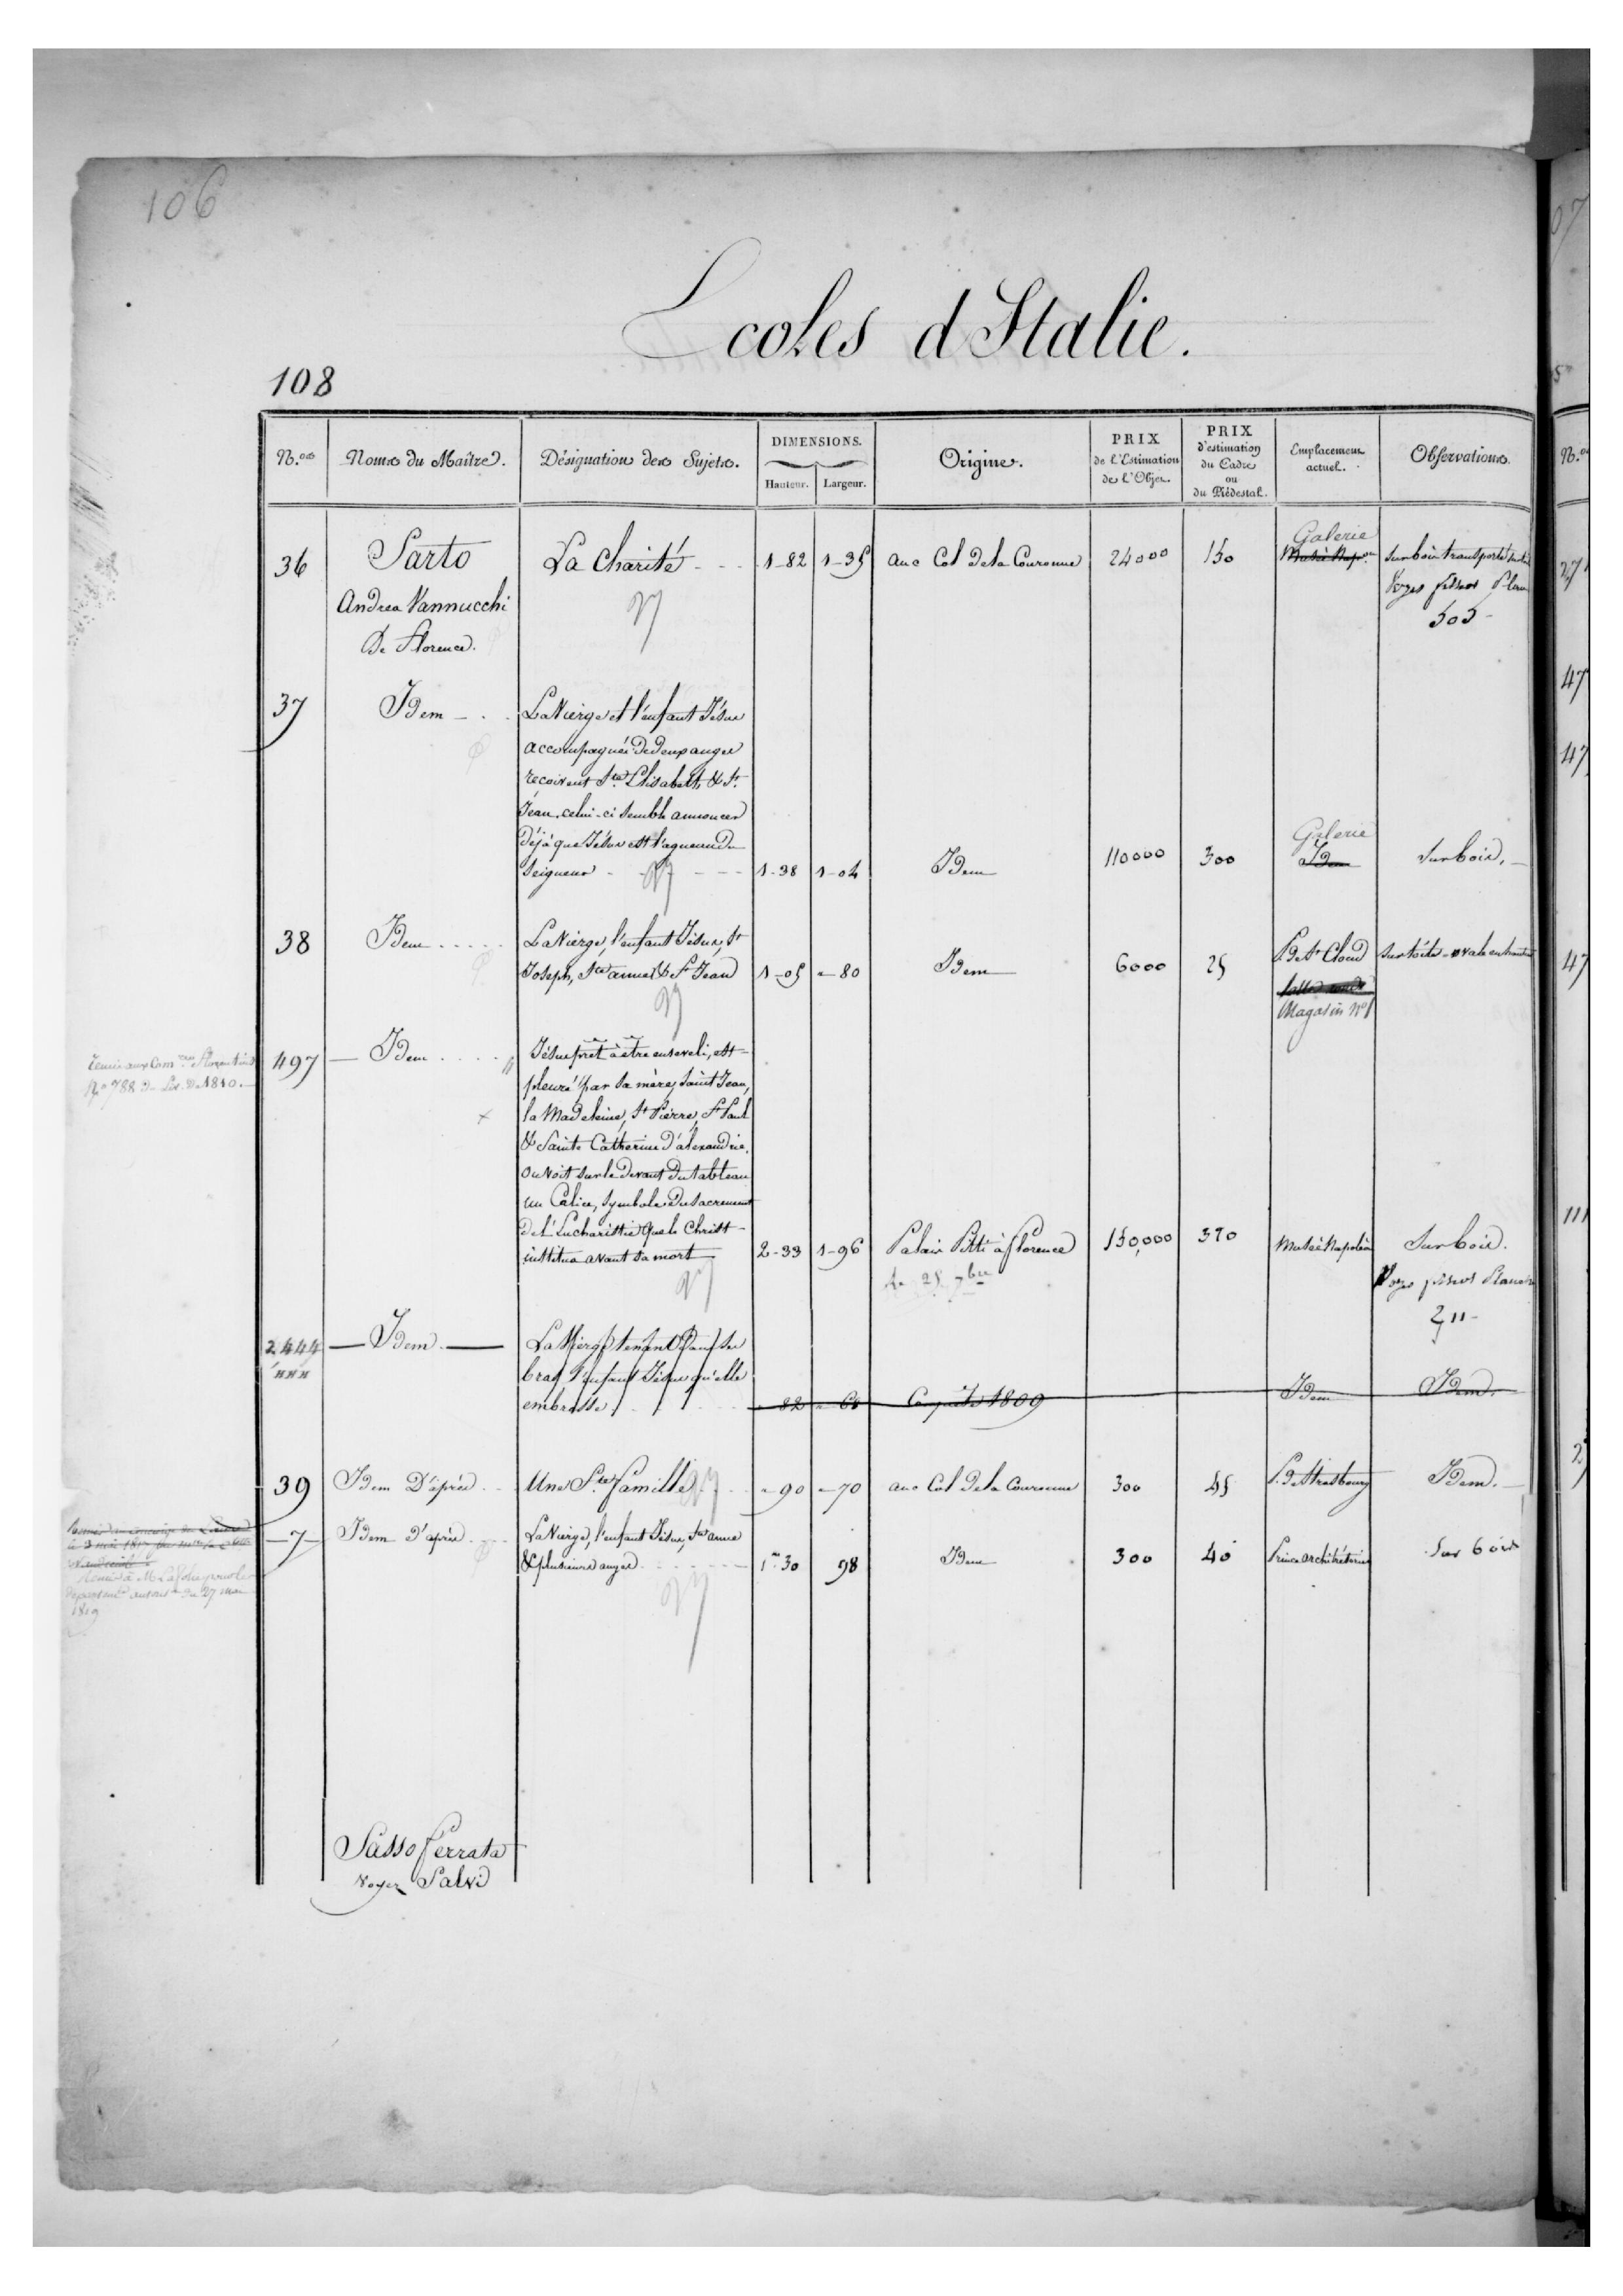 106
Ecoles d'Italie.
108
N.os
Noms du Maître.
Désignation des Sujets.
DIMENSIONS.
Hauteur.
Largeur.
Origine.
PRIX
de l'Estimation
de l'Objet.
PRIX
d'estimation
du Cadre
ou
du Piédestal.
Emplacement
actuel.
Observations.
36
Sarto
Andrea Vannucchi
De Florence.
La Charité
1-82
1-35
anc Col de la Couronne
24000
150
Galerie
Musée Nap.on
Sur bois transporté
Voyez
505
37
Idem
La Vierge et l'enfant Jésus
accompagnés de deux anges
reçoivent Ste Elisabeth & St
Jean, celui-ci semble annoncer
déjà que Jésus est l'agneau du
Seigneur
1-38
1-04
Idem
110000
300
Galerie
Idem
Sur bois.
38
Idem
La Vierge, l'enfant Jésus, St
Joseph, Ste anne & St Jean
1-05
"-80
Idem
6000
25
P. de St Cloud
Magasin No 1
Sur toile
497
Idem
Jésus prêt à être enseveli, est
pleuré par sa mère, Saint Jean,
la Madeleine, St Pierre, St Paul
& Sainte Catherine d'alexandrie.
On voit sur le devant du tableau
un Calice, symbole du Sacrement
de l'Eucharistie que le Christ
institua avant sa mort
2-33
1-96
Palais Pitti à florence
150,000
370
Musée Napoléon
Sur bois.
Voyez
211
2444
Idem
La Vierge tenant dans ses
bras l'enfant Jésus qu'elle
embrasse
82
Conquête 1809
Idem
Idem.
39
Idem D'après
Une Ste famille
"-90
"-70
anc Col de la Couronne
300
45
P. de Strasbourg
Idem.
7
Idem D'après
La Vierge, l'enfant Jésus, Ste anne
& plusieurs anges
1m 30
98
Idem
300
40
Prince architrésorier
Sur bois
Sasso ferrata
Voyez Salvi